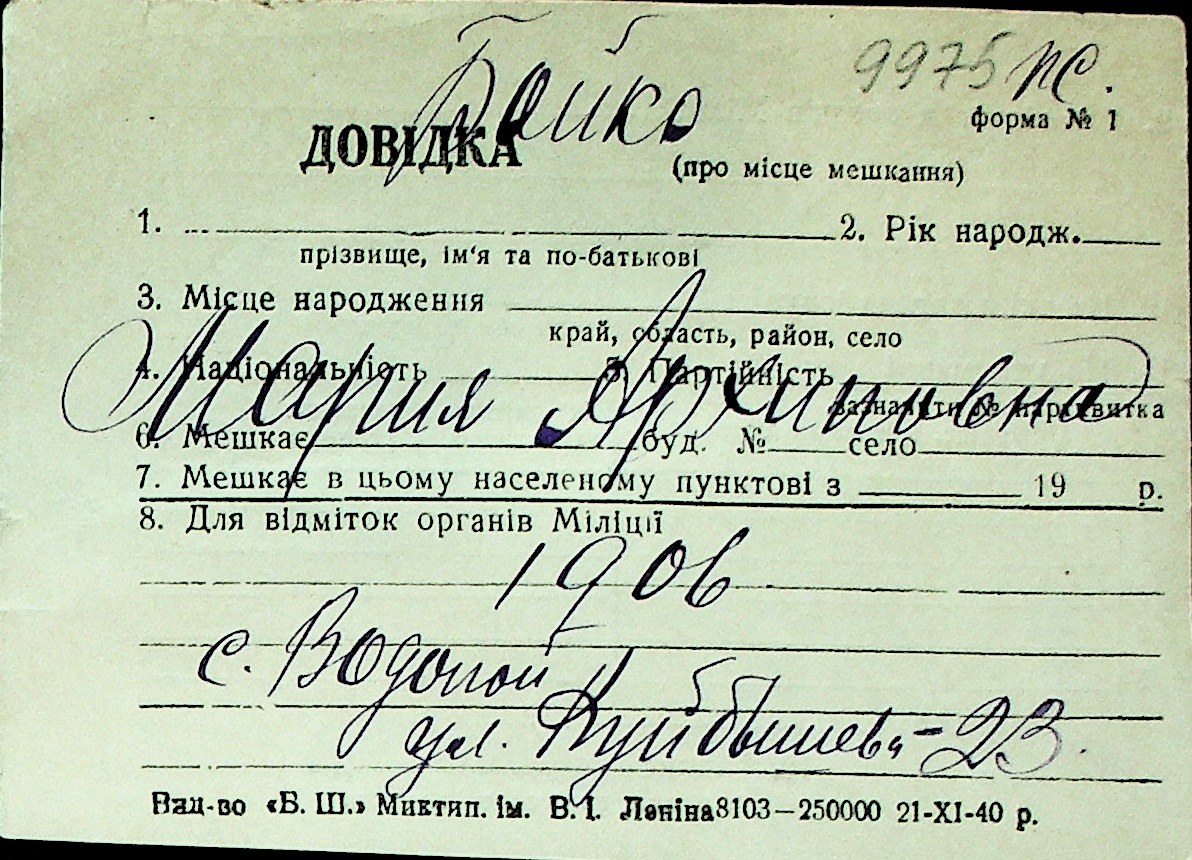 Бойко 9975 пс.
форма № 1
ДОВІДКА
(про місце мешкання)
1. 2. Рік народж.
прізвище, ім'я та по-батькові
3. Місце народження
край, область, район, село
4. Національність 5. Партійність
Мария Архиповна
зазначити № партквитка
6. Мешкає буд. № село
7. Мешкає в цьому населеному пунктові з 19 р.
8. Для відміток органів Міліції
1906
с. Водопой
ул. Куйбышева-23.
Вид-во «Б. Ш.» Миктип. ім. В. І. Леніна 8103—250000 21-XI-40 р.